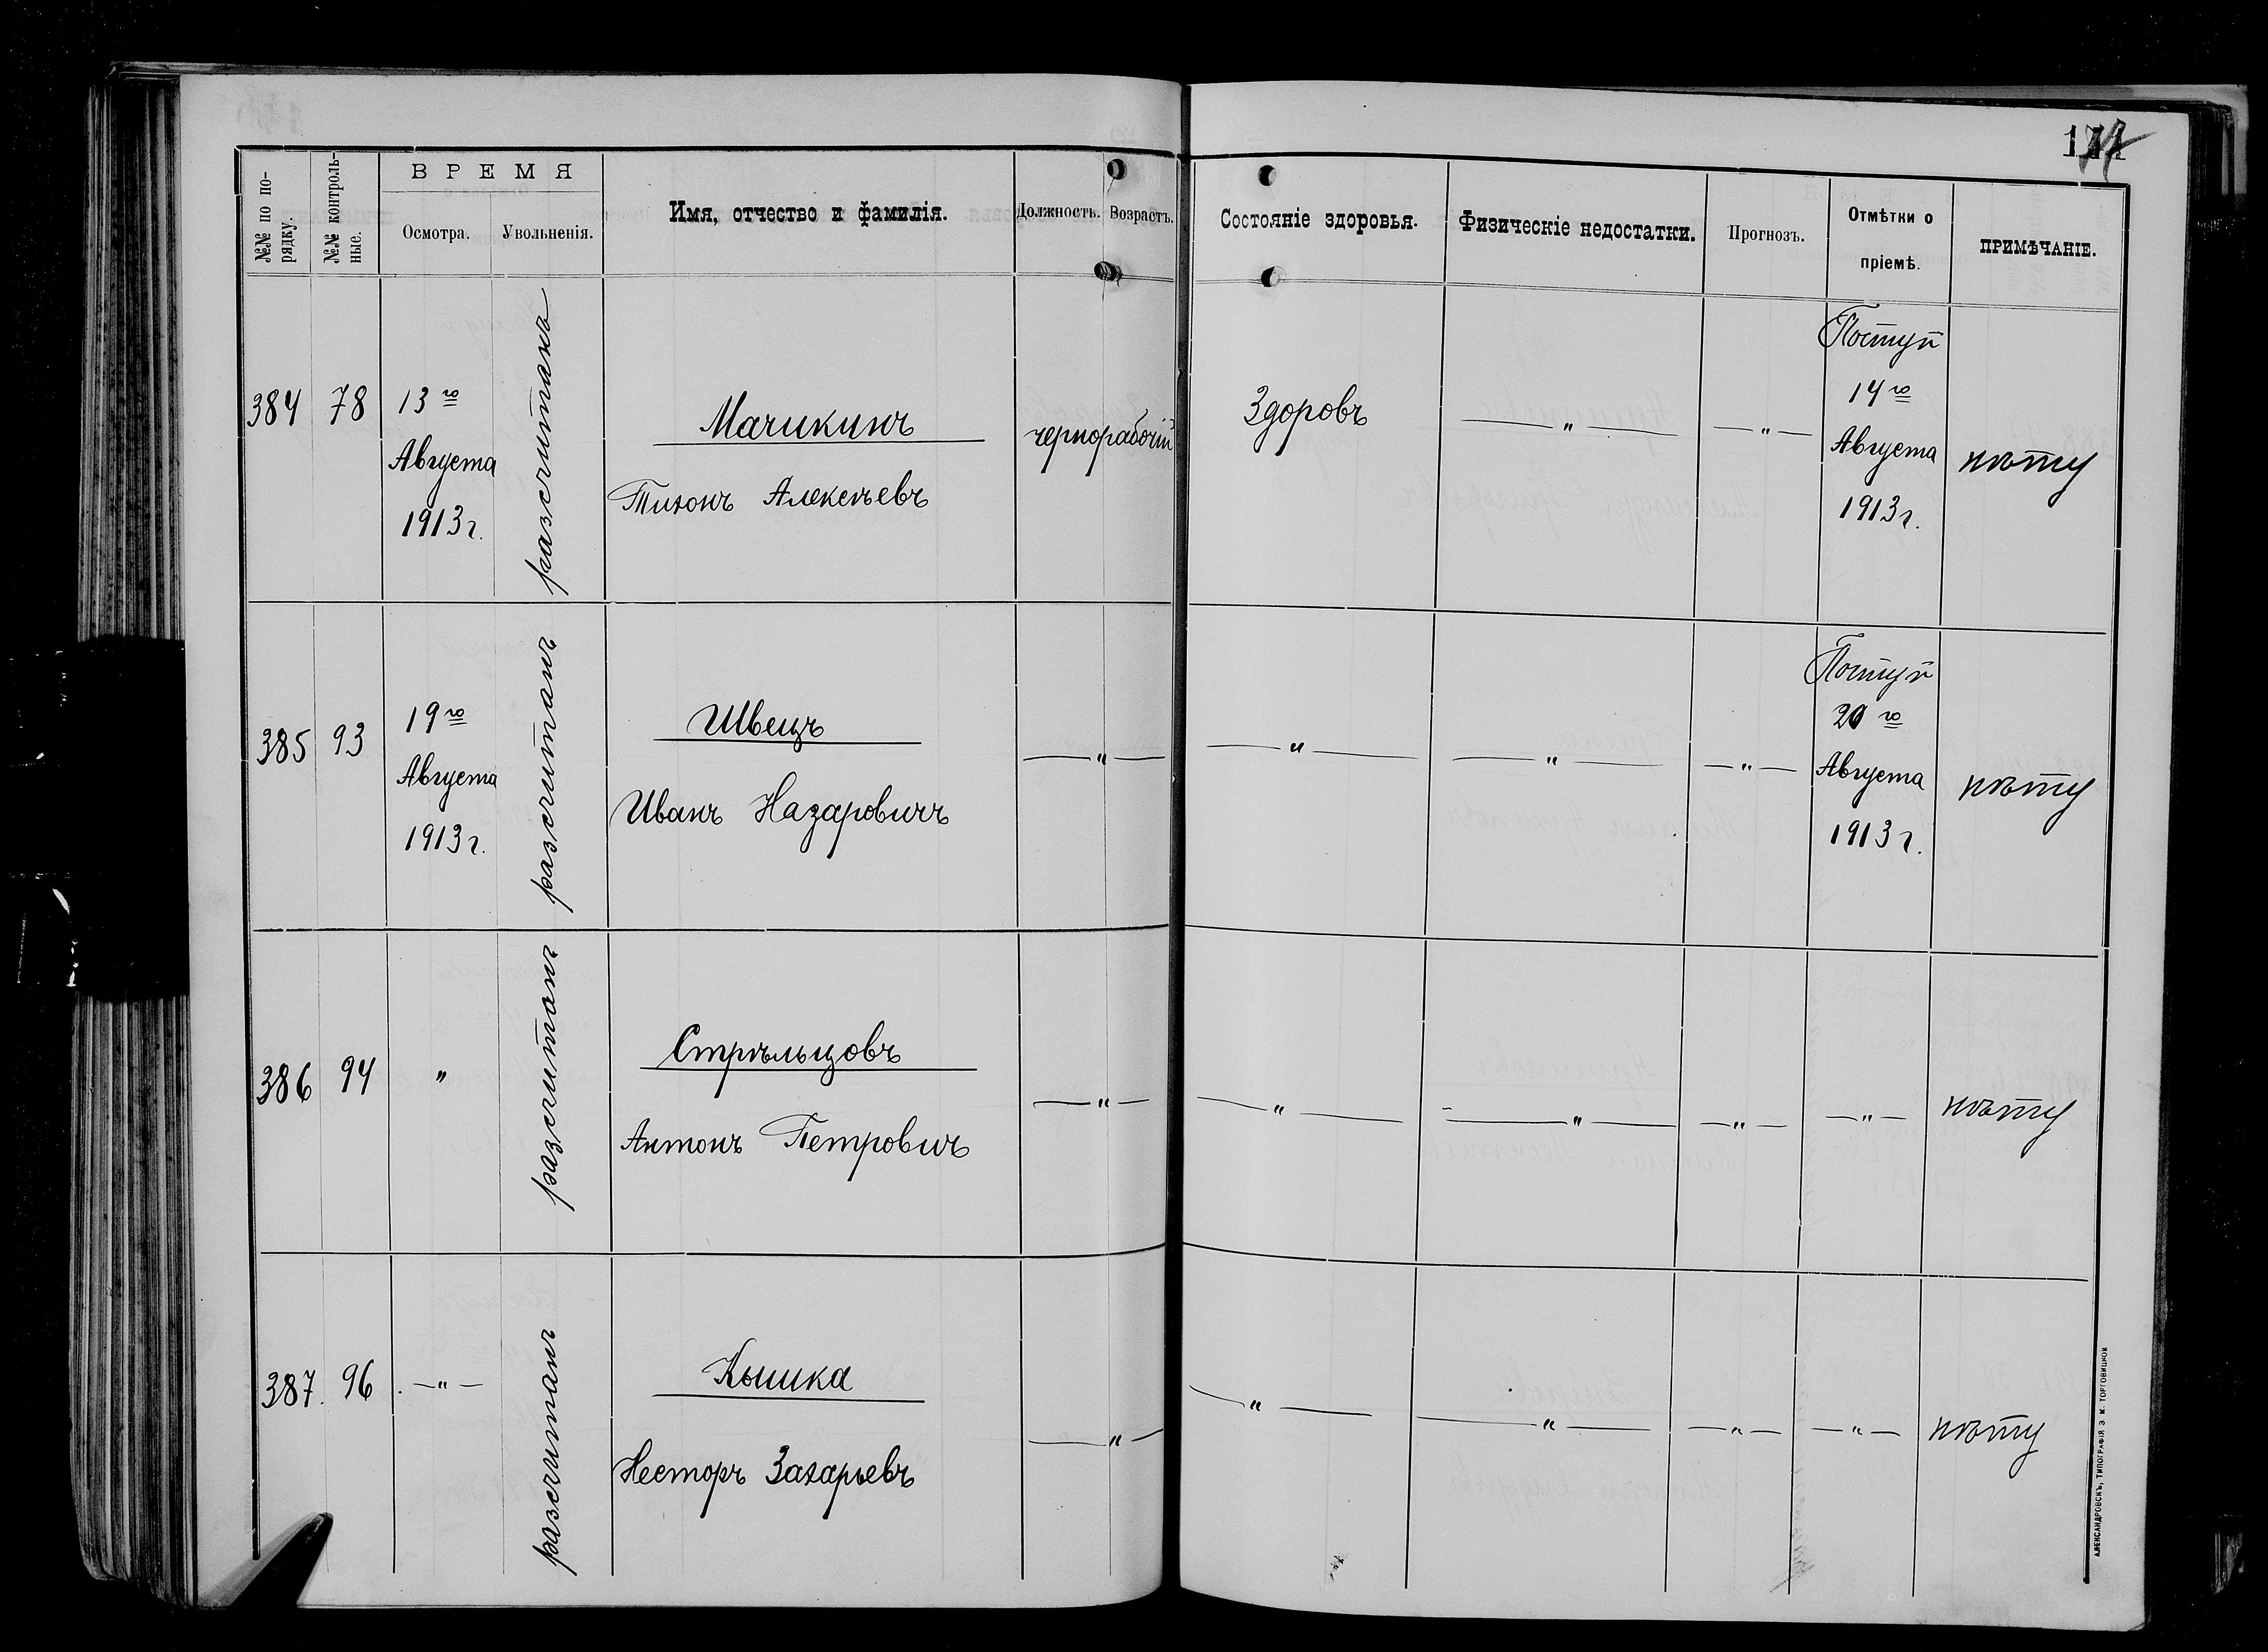 №№ по по-
рядку.
№№ контроль-
ные.
ВРЕМЯ
Осмотра.
Увольненія.
Имя, отчество и фамилія.
Должность.
Возрастъ.
Состояніе здоровья.
Физическіе недостатки.
Прогнозъ.
Отмѣтки о
пріемѣ.
ПРИМѢЧАНІЕ.
384
78
13го
Августа
1913 г.
разсчитанъ
Мачикинъ
Тихонъ Алексѣевъ
чернорабочій
Здоровъ
—„—
—„—
Поступ
14го
Августа
1913 г.
нѣту
385
93
19го
Августа
1913 г.
разсчитанъ
Швецъ
Иванъ Назаровичъ
—„—
—„—
—„—
—„—
Поступ
20го
Августа
1913 г.
нѣту
386
94
„
разсчитанъ
Стрѣльцовъ
Антонъ Петровичъ
—„—
—„—
—„—
—„—
—„—
нѣту
387
96
—„—
разсчитанъ
Кышка
Несторъ Захарьевъ
—„—
—„—
—„—
—„—
—„—
нѣту
АЛЕКСАНДРОВСКЪ, ТИПОГРАФІЯ Э. М. ТОРГОВИЦКОЙ